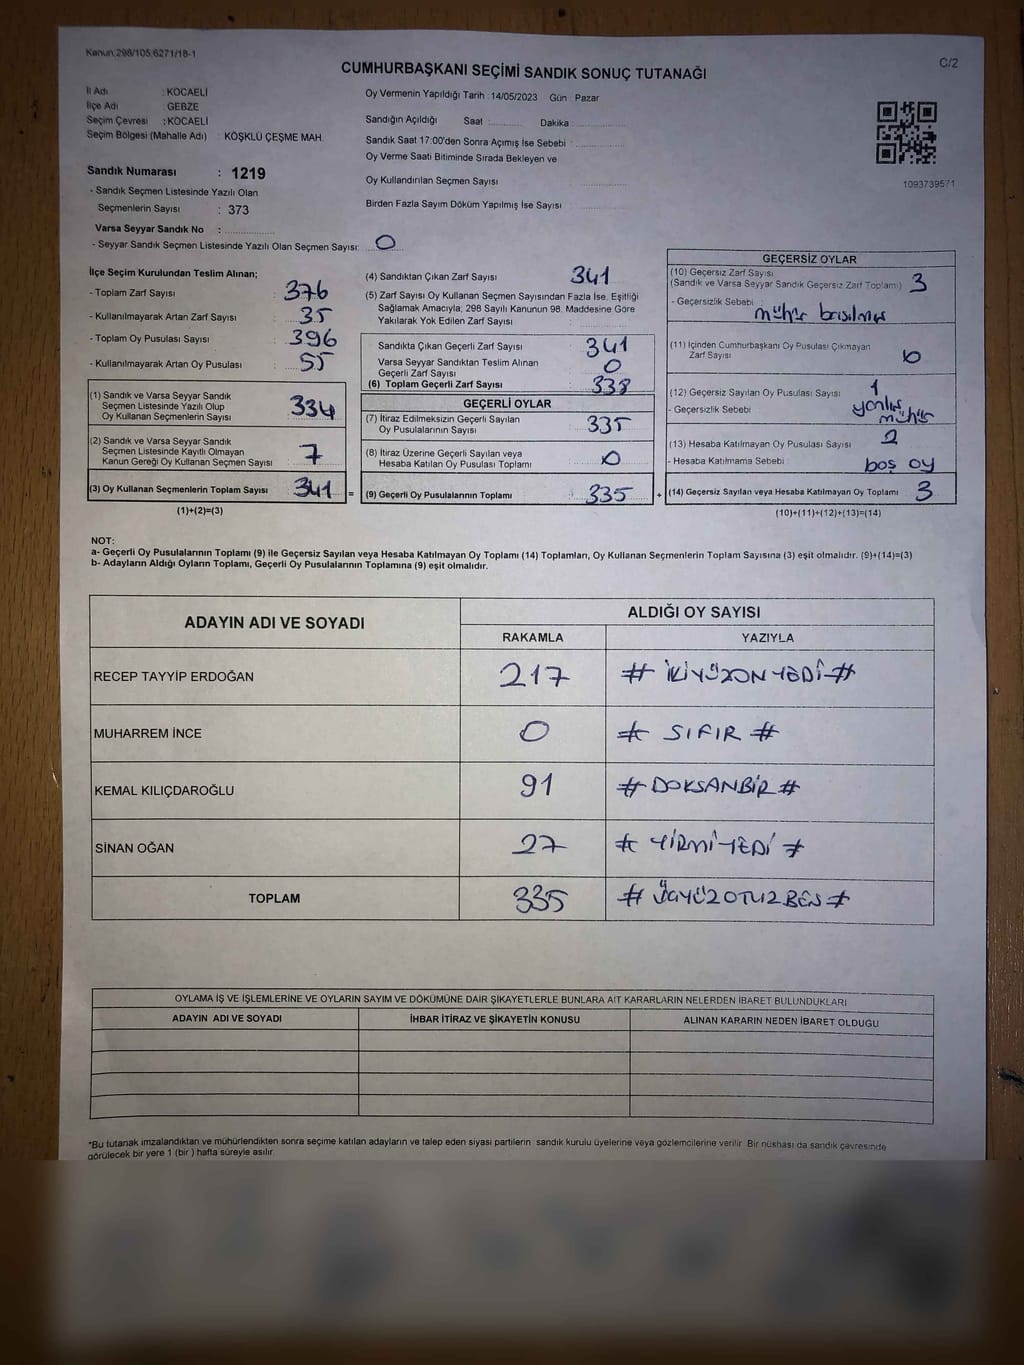 Kanun.298/105.6271/18-1
C/2
CUMHURBAŞKANI SEÇİMİ SANDIK SONUÇ TUTANAĞI
İl Adı : KOCAELİ
İlçe Adı : GEBZE
Seçim Çevresi : KOCAELİ
Seçim Bölgesi (Mahalle Adı) : KÖŞKLÜ ÇEŞME MAH.
Oy Vermenin Yapıldığı Tarih : 14/05/2023 Gün : Pazar
Sandığın Açıldığı Saat : Dakika :
Sandık Saat 17:00'den Sonra Açımış İse Sebebi :
Oy Verme Saati Bitiminde Sırada Bekleyen ve
Oy Kullandırılan Seçmen Sayısı
Birden Fazla Sayım Döküm Yapılmış İse Sayısı
1093739571
Sandık Numarası : 1219
- Sandık Seçmen Listesinde Yazılı Olan
Seçmenlerin Sayısı : 373
Varsa Seyyar Sandık No :
- Seyyar Sandık Seçmen Listesinde Yazılı Olan Seçmen Sayısı: 0
İlçe Seçim Kurulundan Teslim Alınan;
- Toplam Zarf Sayısı : 376
- Kullanılmayarak Artan Zarf Sayısı : 35
- Toplam Oy Pusulası Sayısı : 396
- Kullanılmayarak Artan Oy Pusulası : 55
(1) Sandık ve Varsa Seyyar Sandık
Seçmen Listesinde Yazılı Olup
Oy Kullanan Seçmenlerin Sayısı 334
(2) Sandık ve Varsa Seyyar Sandık
Seçmen Listesinde Kayıtlı Olmayan
Kanun Gereği Oy Kullanan Seçmen Sayısı 7
(3) Oy Kullanan Seçmenlerin Toplam Sayısı 341 =
(1)+(2)=(3)
(4) Sandıktan Çıkan Zarf Sayısı 341
(5) Zarf Sayısı Oy Kullanan Seçmen Sayısından Fazla İse, Eşitliği
Sağlamak Amacıyla, 298 Sayılı Kanunun 98. Maddesine Göre
Yakılarak Yok Edilen Zarf Sayısı :
Sandıkta Çıkan Geçerli Zarf Sayısı : 341
Varsa Seyyar Sandıktan Teslim Alınan
Geçerli Zarf Sayısı : 0
(6) Toplam Geçerli Zarf Sayısı : 338
GEÇERLİ OYLAR
(7) İtiraz Edilmeksizin Geçerli Sayılan
Oy Pusulalarının Sayısı : 335
(8) İtiraz Üzerine Geçerli Sayılan veya
Hesaba Katılan Oy Pusulası Toplamı : 0
(9) Geçerli Oy Pusulalarının Toplamı : 335 +
GEÇERSİZ OYLAR
(10) Geçersiz Zarf Sayısı
(Sandık ve Varsa Seyyar Sandık Geçersiz Zarf Toplamı) : 3
- Geçersizlik Sebebi :
mühür basılmış
(11) İçinden Cumhurbaşkanı Oy Pusulası Çıkmayan
Zarf Sayısı 0
(12) Geçersiz Sayılan Oy Pusulası Sayısı : 1
- Geçersizlik Sebebi : yanlış
mühür
(13) Hesaba Katılmayan Oy Pusulası Sayısı : 2
- Hesaba Katılmama Sebebi : boş oy
(14) Geçersiz Sayılan veya Hesaba Katılmayan Oy Toplamı 3
(10)+(11)+(12)+(13)=(14)
NOT:
a- Geçerli Oy Pusulalarının Toplamı (9) ile Geçersiz Sayılan veya Hesaba Katılmayan Oy Toplamı (14) Toplamları, Oy Kullanan Seçmenlerin Toplam Sayısına (3) eşit olmalıdır. (9)+(14)=(3)
b- Adayların Aldığı Oyların Toplamı, Geçerli Oy Pusulalarının Toplamına (9) eşit olmalıdır.
ADAYIN ADI VE SOYADI
ALDIĞI OY SAYISI
RAKAMLA YAZIYLA
RECEP TAYYİP ERDOĞAN 217 # İKİYÜZONYEDİ #
MUHARREM İNCE 0 # SIFIR #
KEMAL KILIÇDAROĞLU 91 # DOKSANBİR #
SİNAN OĞAN 27 # YİRMİYEDİ #
TOPLAM 335 # ÜÇYÜZOTUZBEŞ #
OYLAMA İŞ VE İŞLEMLERİNE VE OYLARIN SAYIM VE DÖKÜMÜNE DAİR ŞİKAYETLERLE BUNLARA AİT KARARLARIN NELERDEN İBARET BULUNDUKLARI
ADAYIN ADI VE SOYADI İHBAR İTİRAZ VE ŞİKAYETİN KONUSU ALINAN KARARIN NEDEN İBARET OLDUĞU
*Bu tutanak imzalandıktan ve mühürlendikten sonra seçime katılan adayların ve talep eden siyasi partilerin sandık kurulu üyelerine veya gözlemcilerine verilir. Bir nüshası da sandık çevresinde
görülecek bir yere 1 (bir ) hafta süreyle asılır.